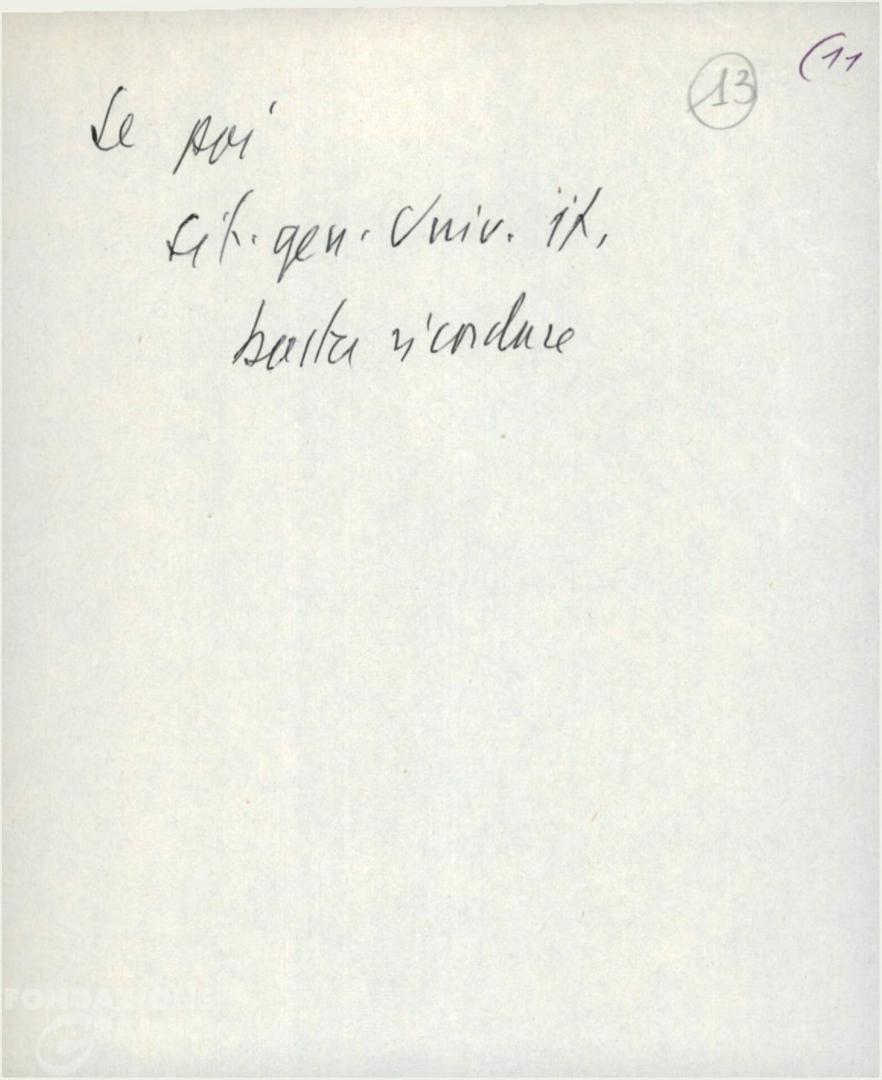 13
(11
Se poi
sit. gen. Univ. it,
basta ricordare
FONDAZIONE
GRAMSCI